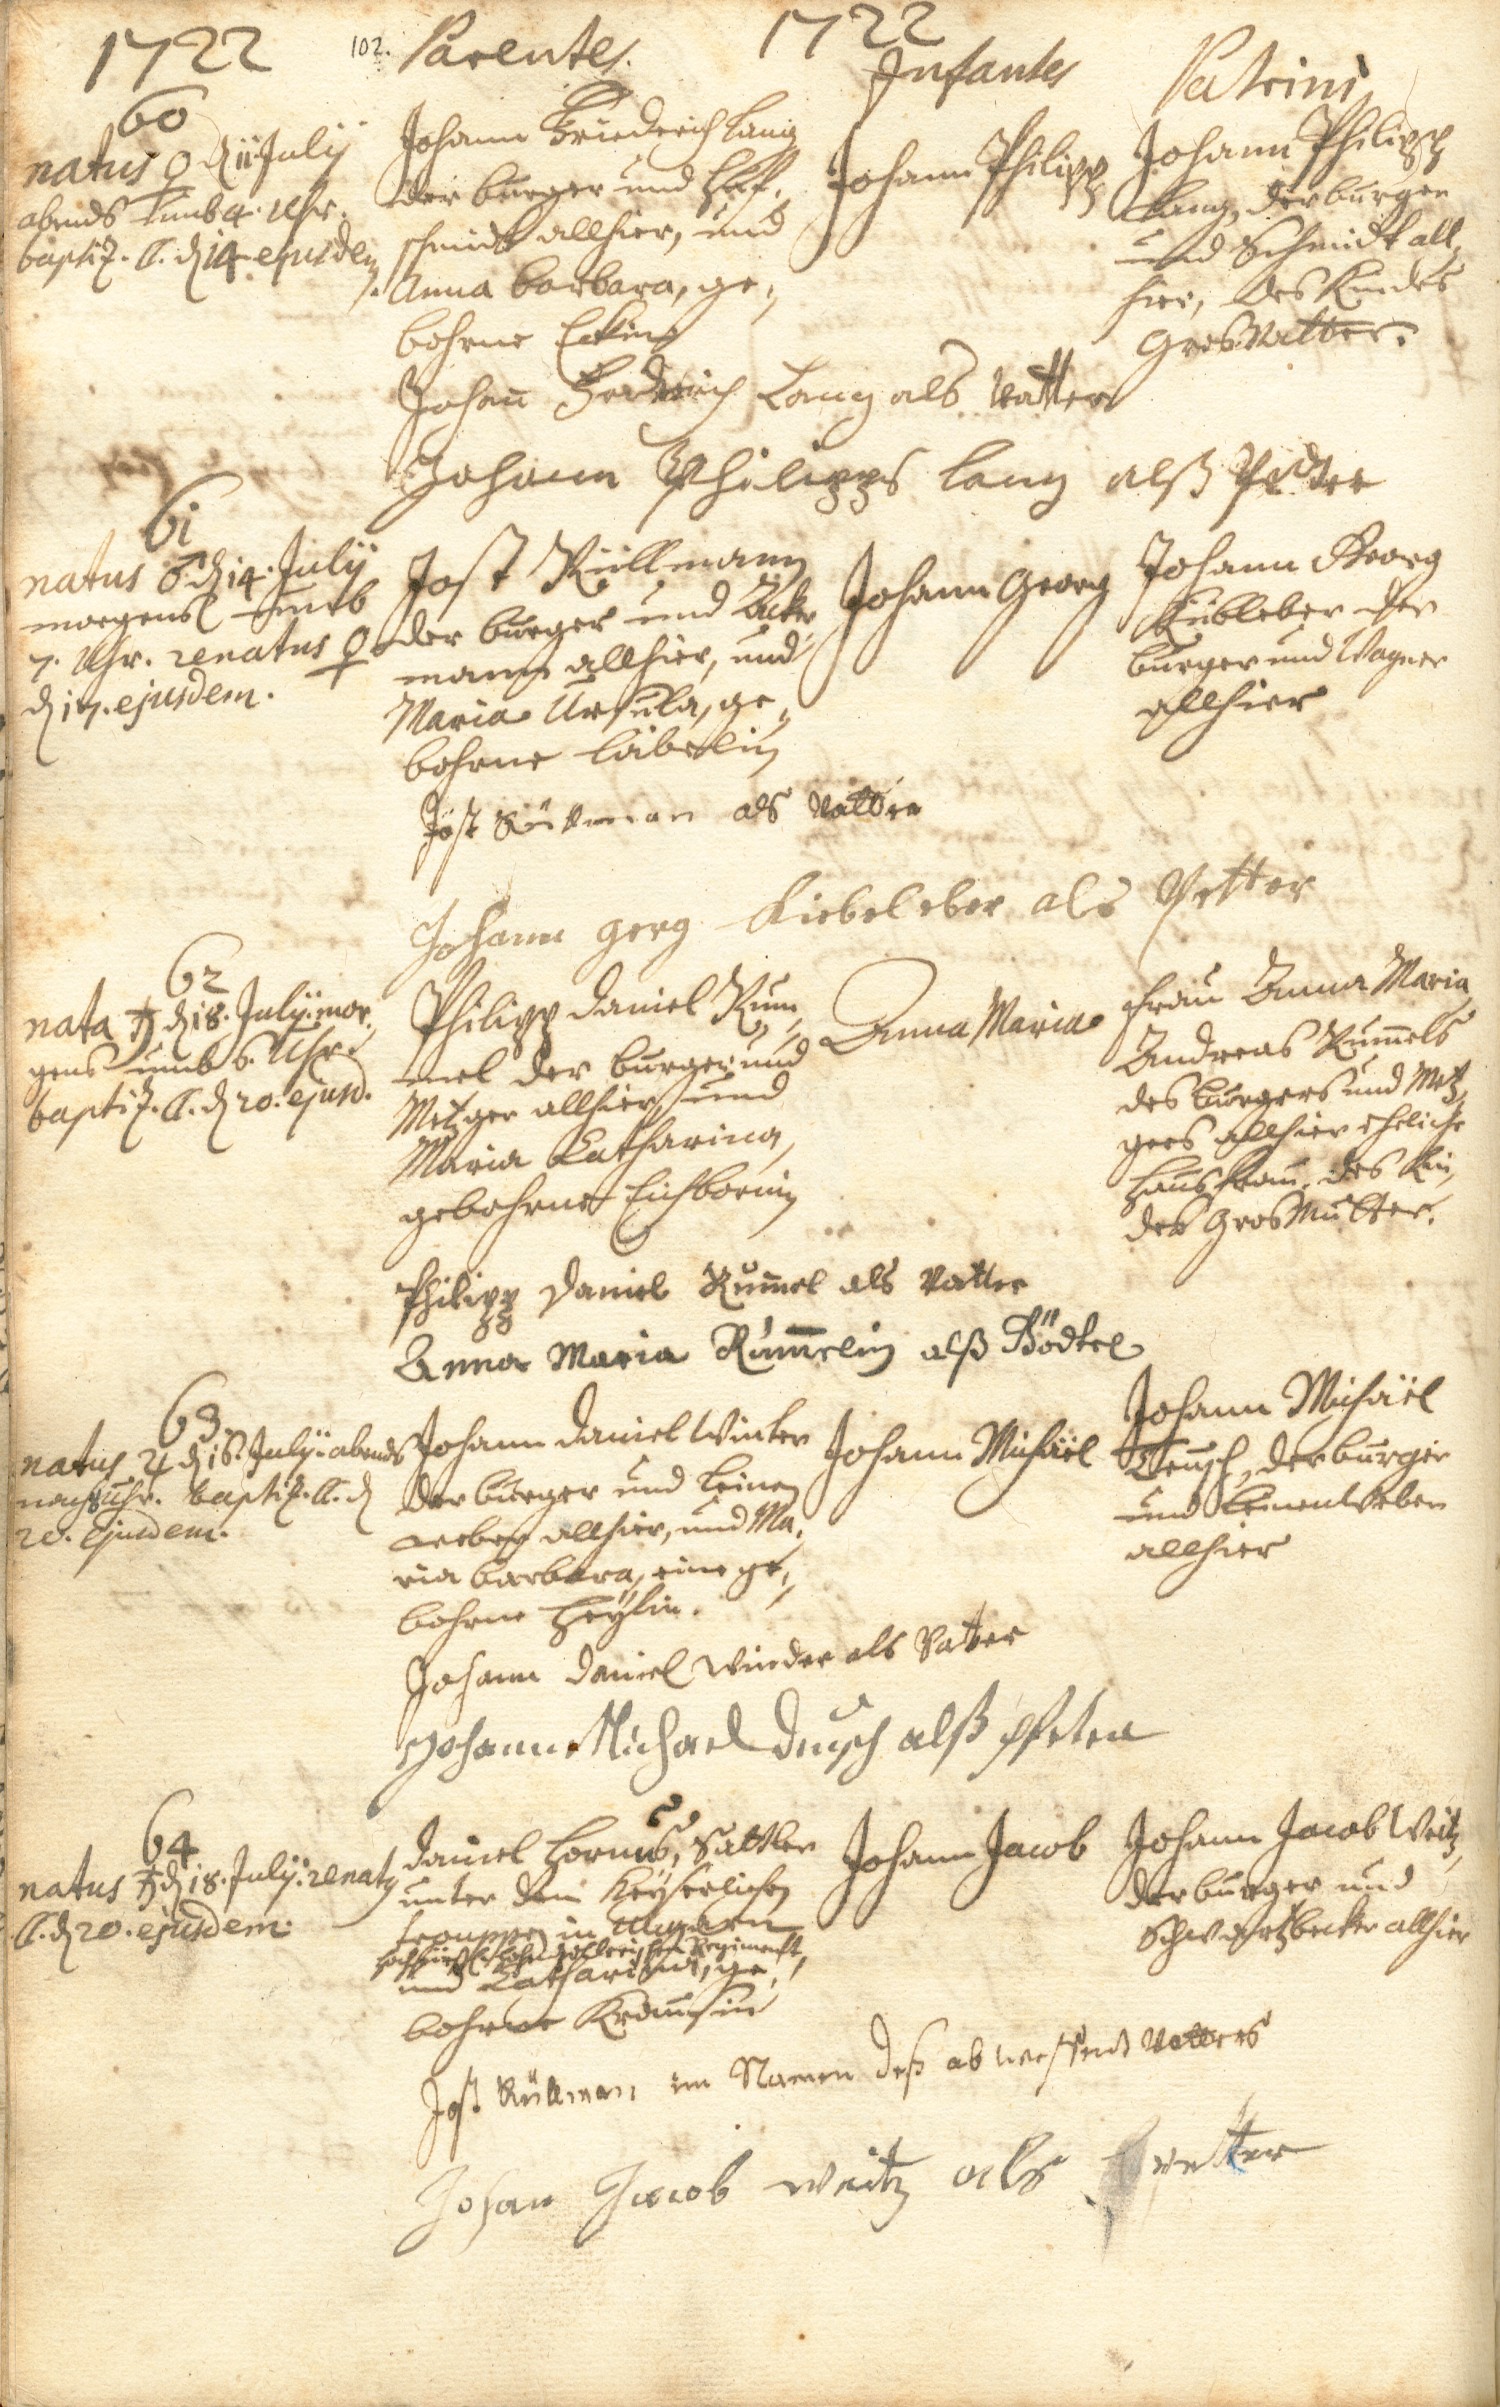 1722
102.
Parentes.
1722
Infantes
Patrini
60
natus ♀ d 11. Julij
abends umb 4. Uhr.
baptiz. ☾. d 14 ejusdem
Johann Friederich Lang
der burger und Huf-
schmidt allhier, und
Anna Barbara, ge-
bohrne
Johann Philipp
Johann Philipp
Lang, der burger
und Schmidt all-
hier, des Kindes
GrosVatter.
Johan Lang als Vatter
Johann Philipps Lang alß Petter
61
natus ♂ d 14. Julij
morgens umb
7. Uhr. renatus ♀
d 17. ejusdem.
Jost Rüllmann
der burger und Acker
mann allhier, und
Maria Ursula, ge-
bohrne Läbelin
Johann Georg
Johann Georg
Kübleber der
burger und Wagner
allhier
Jost Rüllman als Vatter
Johann Gerg Kiebeleber als Petter
62
nata ♄ d 18. Julij. mor-
gens umb 6. Uhr.
baptiz. ☾. d 20. ejusd.
Philipp Daniel Rum-
mel der burger und
Metzger allhier, und
Maria Catharina,
gebohrne Eichbornin
Anna Maria
Frau Anna Maria,
Andreas Rum̄els
des burgers und Metz-
gers allhier eheliche
Hausfrau, des Kin-
des GrosMutter.
Philipp Daniel Rum̄el als Vatter
Anna Maria Rum̄elin alß Gödtel
63.
natus ♃ d 16. Julij. abends
nach 8 Uhr. baptiz. ☾. d
20. ejusdem.
Johann Daniel Winter
der burger und Leinen
weber allhier, und Ma-
ria Barbara, eine ge-
bohrne Heylin.
Johann Michaël
Johann Michaël
Teusch, der burger
und Leinenweber
allhier
Johann Daniel Winder als Vatter
Johann Michael Deusch alß Pfeter
64
natus ♄ d 18. Julij. renatus
☾. d 20. ejusdem.
Daniel Hornus, Sattler
unter dem Keyserlichen
trouppen in Ungarn
Hohenzollerischen Regiment,
und Catharina, ge-
bohrne Kraussin
Johann Jacob
Johann Jacob Weitz,
der burger und
Schwartzbecker allhier
Jost Rüllman im Namen deß abwessent Vatters
Johan Jacob Weitz als Petter